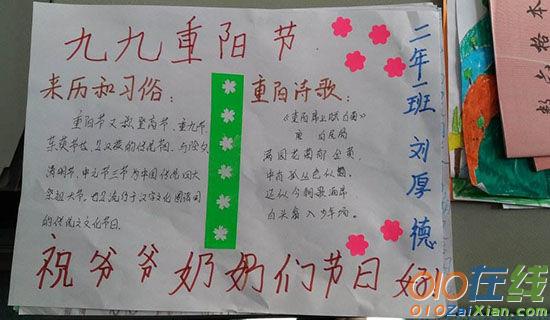 九九重阳节
来历和习俗：
重阳节又称登高节、重九节、
茱萸节也是汉族的传统节日。与除夕
清明节、中元节三节为中国传统四大
祭祖大节。也是流行于汉字文化圈诸国
的传统文化节日。
重阳诗歌：
满园花菊郁金黄，
中有孤丛色似霜。
还似今朝歌酒席
白头翁入少年场。
二年一班 刘厚德
祝爷爷奶奶们节日好
数学格本
010在线
010ZaiXian.com